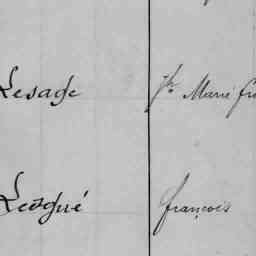 Lesage Jh Marie
Lesgué françois